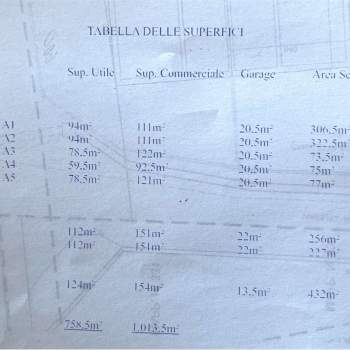 TABELLA DELLE SUPERFICI
Sup. Utile Sup. Commerciale Garage Area Sc
A1 94m² 111m² 20.5m² 306.5m
A2 94m² 111m² 20.5m² 322.5m
A3 78.5m² 122m² 20.5m² 73.5m²
A4 59.5m² 92.5m² 20.5m² 75m²
A5 78.5m² 121m² 20.5m² 77m²
112m² 151m² 22m² 256m²
112m² 151m² 22m² 227m²
124m² 154m² 13.5m² 432m²
758.5m² 1.013.5m²